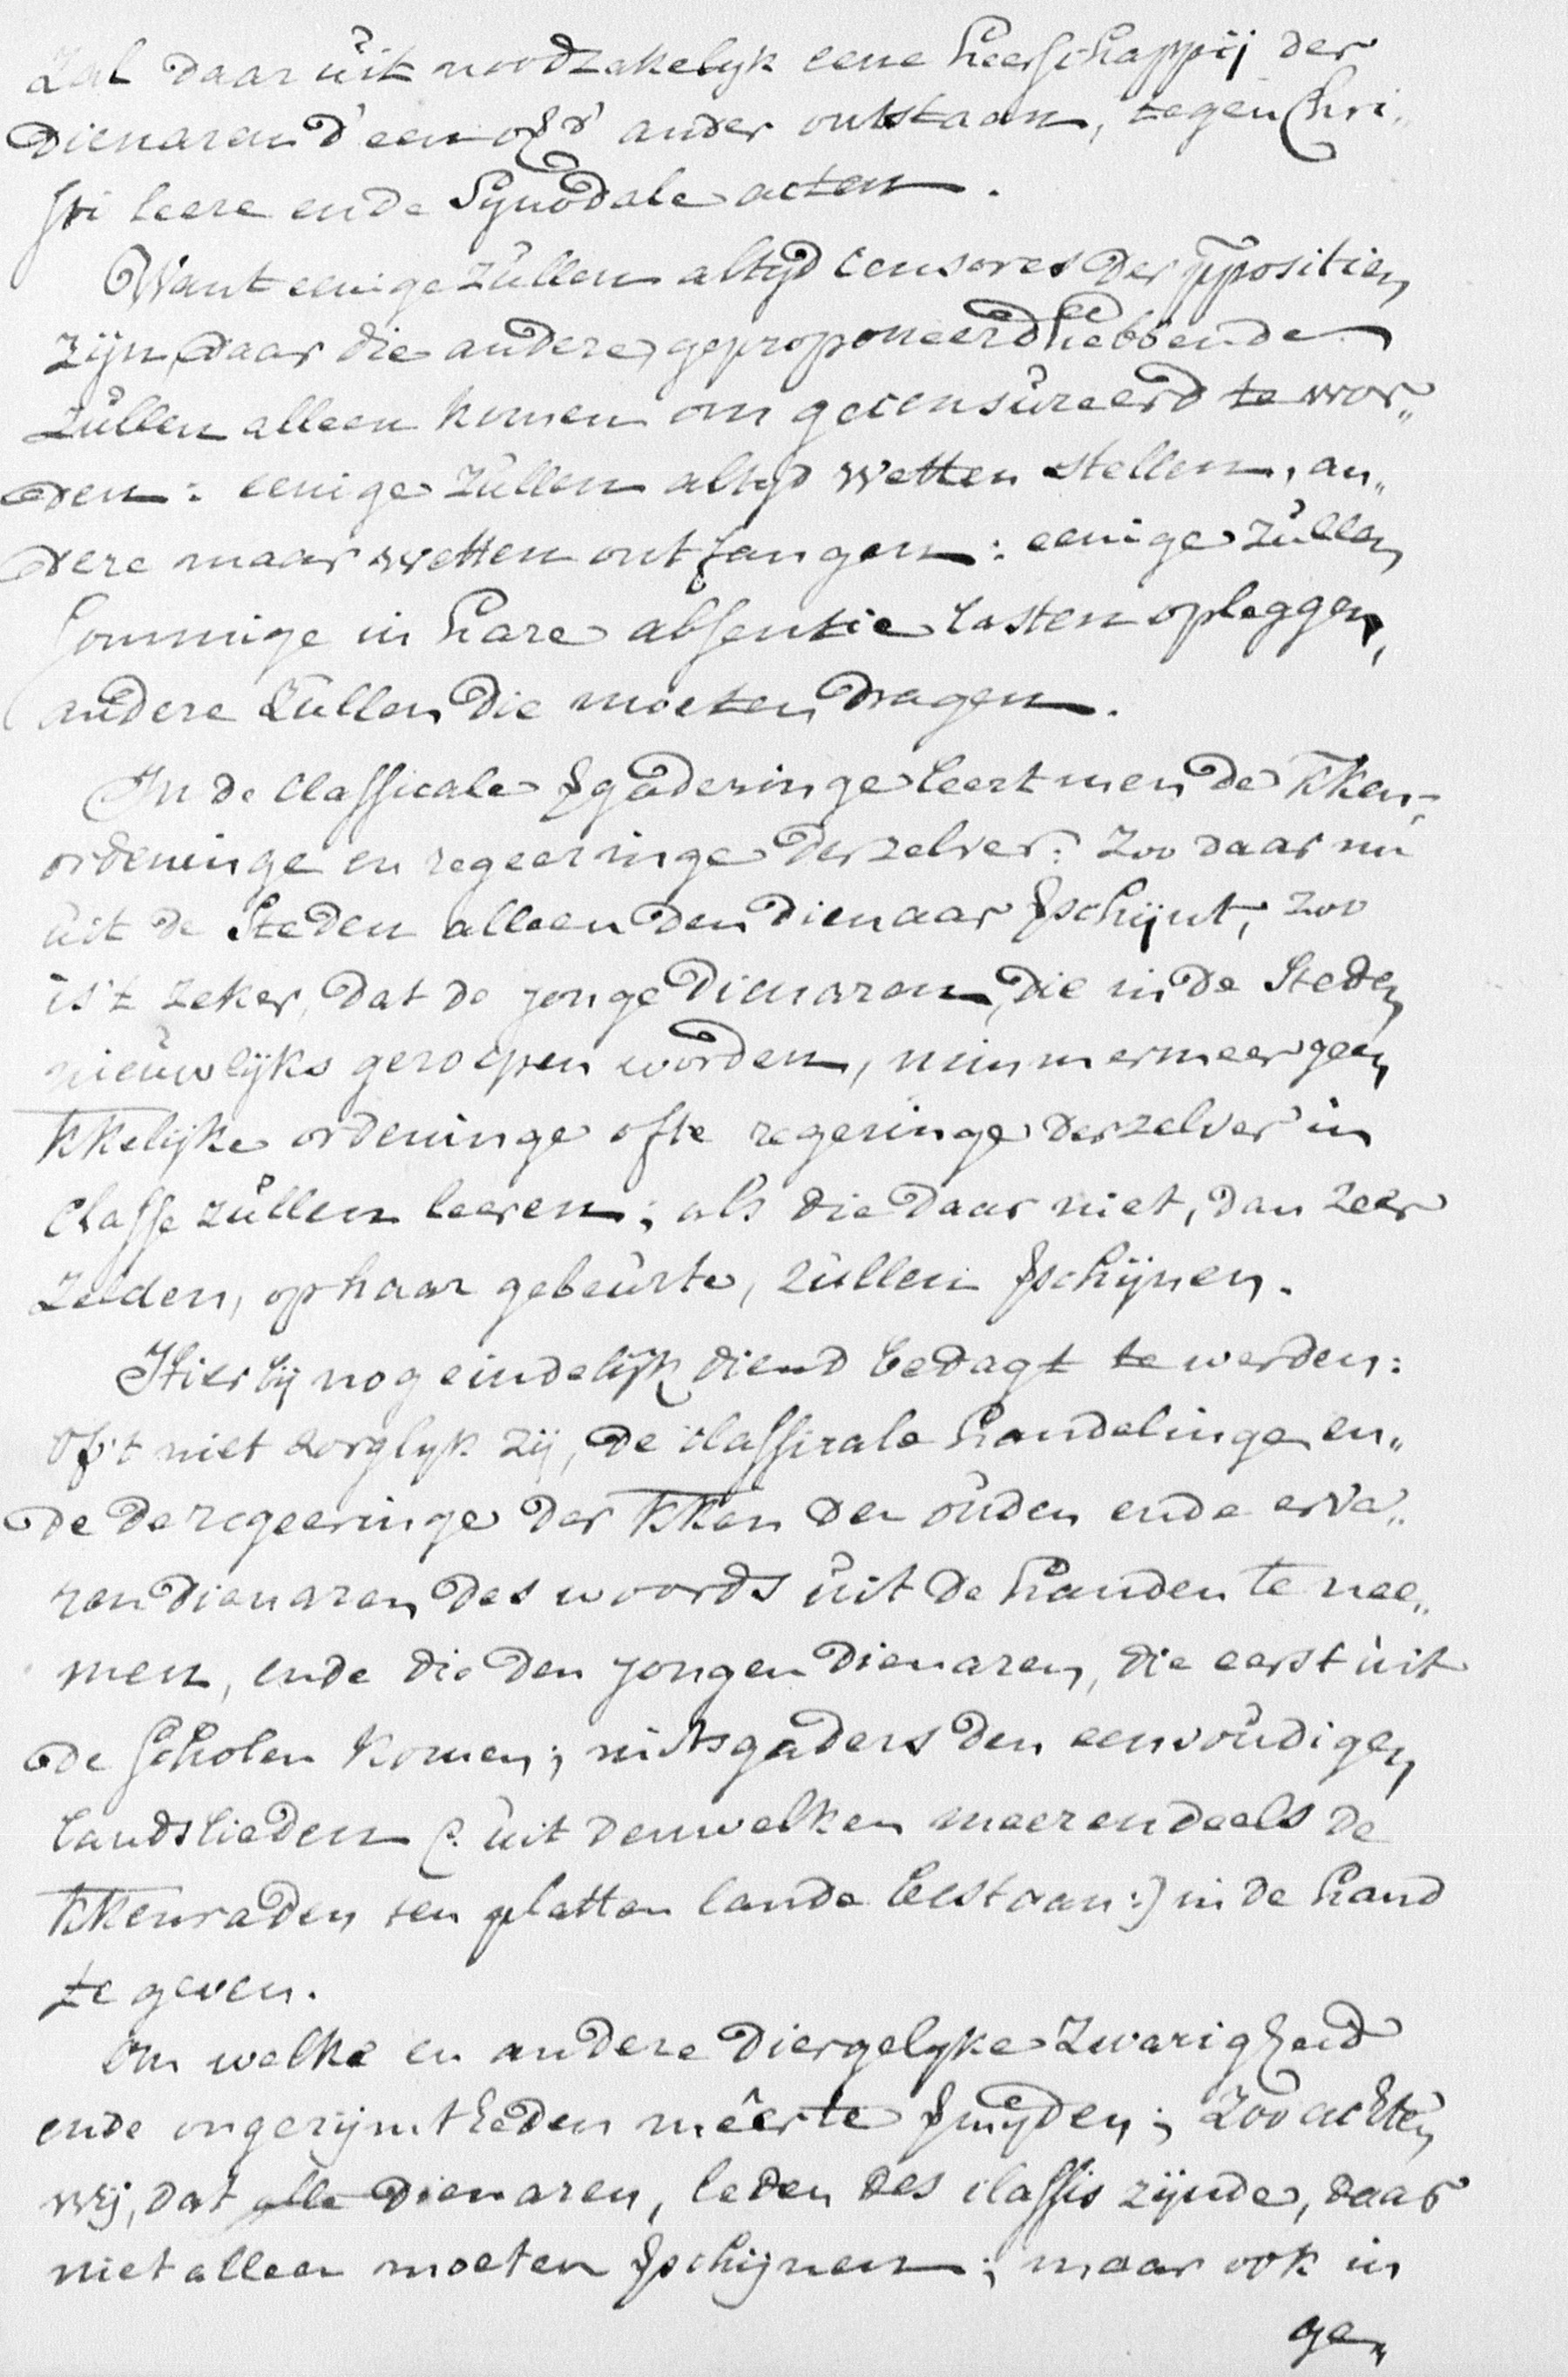 Zal daar uit noodzakelyk eene heerschappij der
Dienaren d'een of d' ander ontstaan, tegen Chri„
sti leere ende Synodale acten.
Want eenige zullen altyd censores der ppositien
zijn, daar die andere, geproponeerd hebbende
zullen alleen komen om gecensureerd te wor„
den: eenige zullen altyd wetten stellen, an„
dere maar wetten ontfangen: eenige zullen
sommige in hare absentie lasten opleggen,
andere zullen die moeten dragen.
In de classicale vgaderinge leert men de kken-
ordeninge en regeeringe derzelver: zoo daar nu
uit de Steden alleen den dienaar vschijnt, zoo
is't zeker, dat de jonge Dienaren, die in de Steden
nieuwlijks geroepen worden, nimmermeer geen
kkelijke ordeninge ofte regeringe derzelver in
Classe zullen leeren; als die daar niet, dan zeer
zelden, op haar gebeurte, zullen vschijnen.
Hier bij nog eindelijk diend bedagt te werden:
Of't niet zorglyk zij, de classicale handelinge en„
de de regeeringe der kken den ouden ende erva„
ren dienaren des woords uit de handen te nee„
men, ende die den jongen dienaren, die eerst uit
de scholen komen; mitsgaders den eenvoudigen
landslieden (: uit denwelken meerendeels de
kkenraden ten platten lande bestaan:) in de hand
te geven.
Om welke en andere diergelyke zwarigheid
ende ongerijmtheden meer te vmyden; zoo achten
wij, dat alle Dienaren, leden des classis zijnde, daar
niet alleen moeten vschijnen; maar ook in
ge„